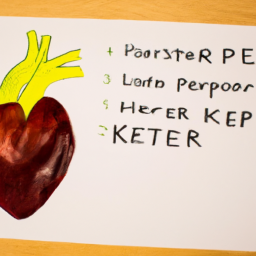 PoorsteR PE
Lartn Perpoor
HerER KEP
KETER